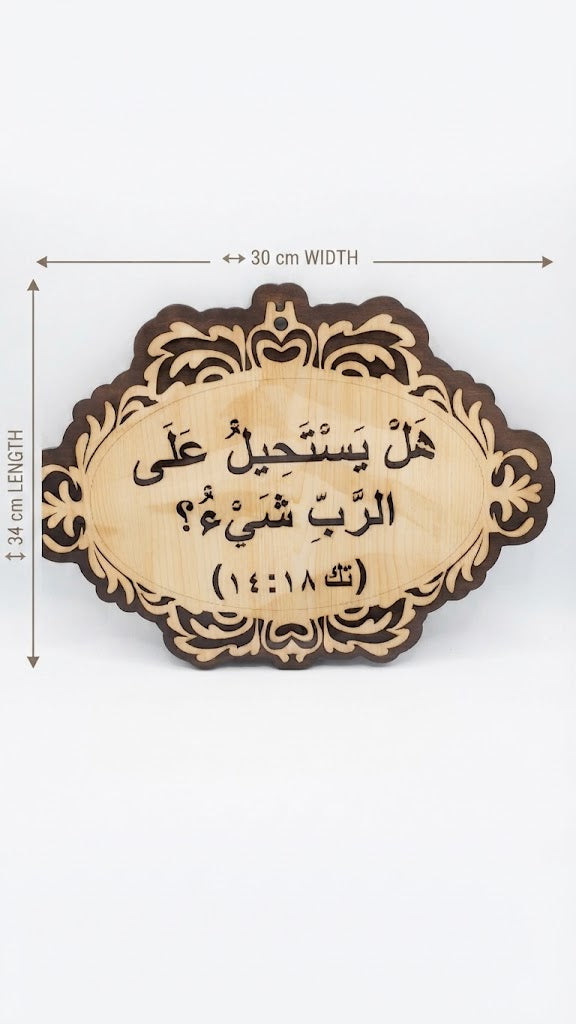 ↔ 30 cm WIDTH
↕ 34 cm LENGTH
هَلْ يَسْتَحِيلُ عَلَى
الرَّبِّ شَيْءٌ؟
(تك ١٨:١٤)